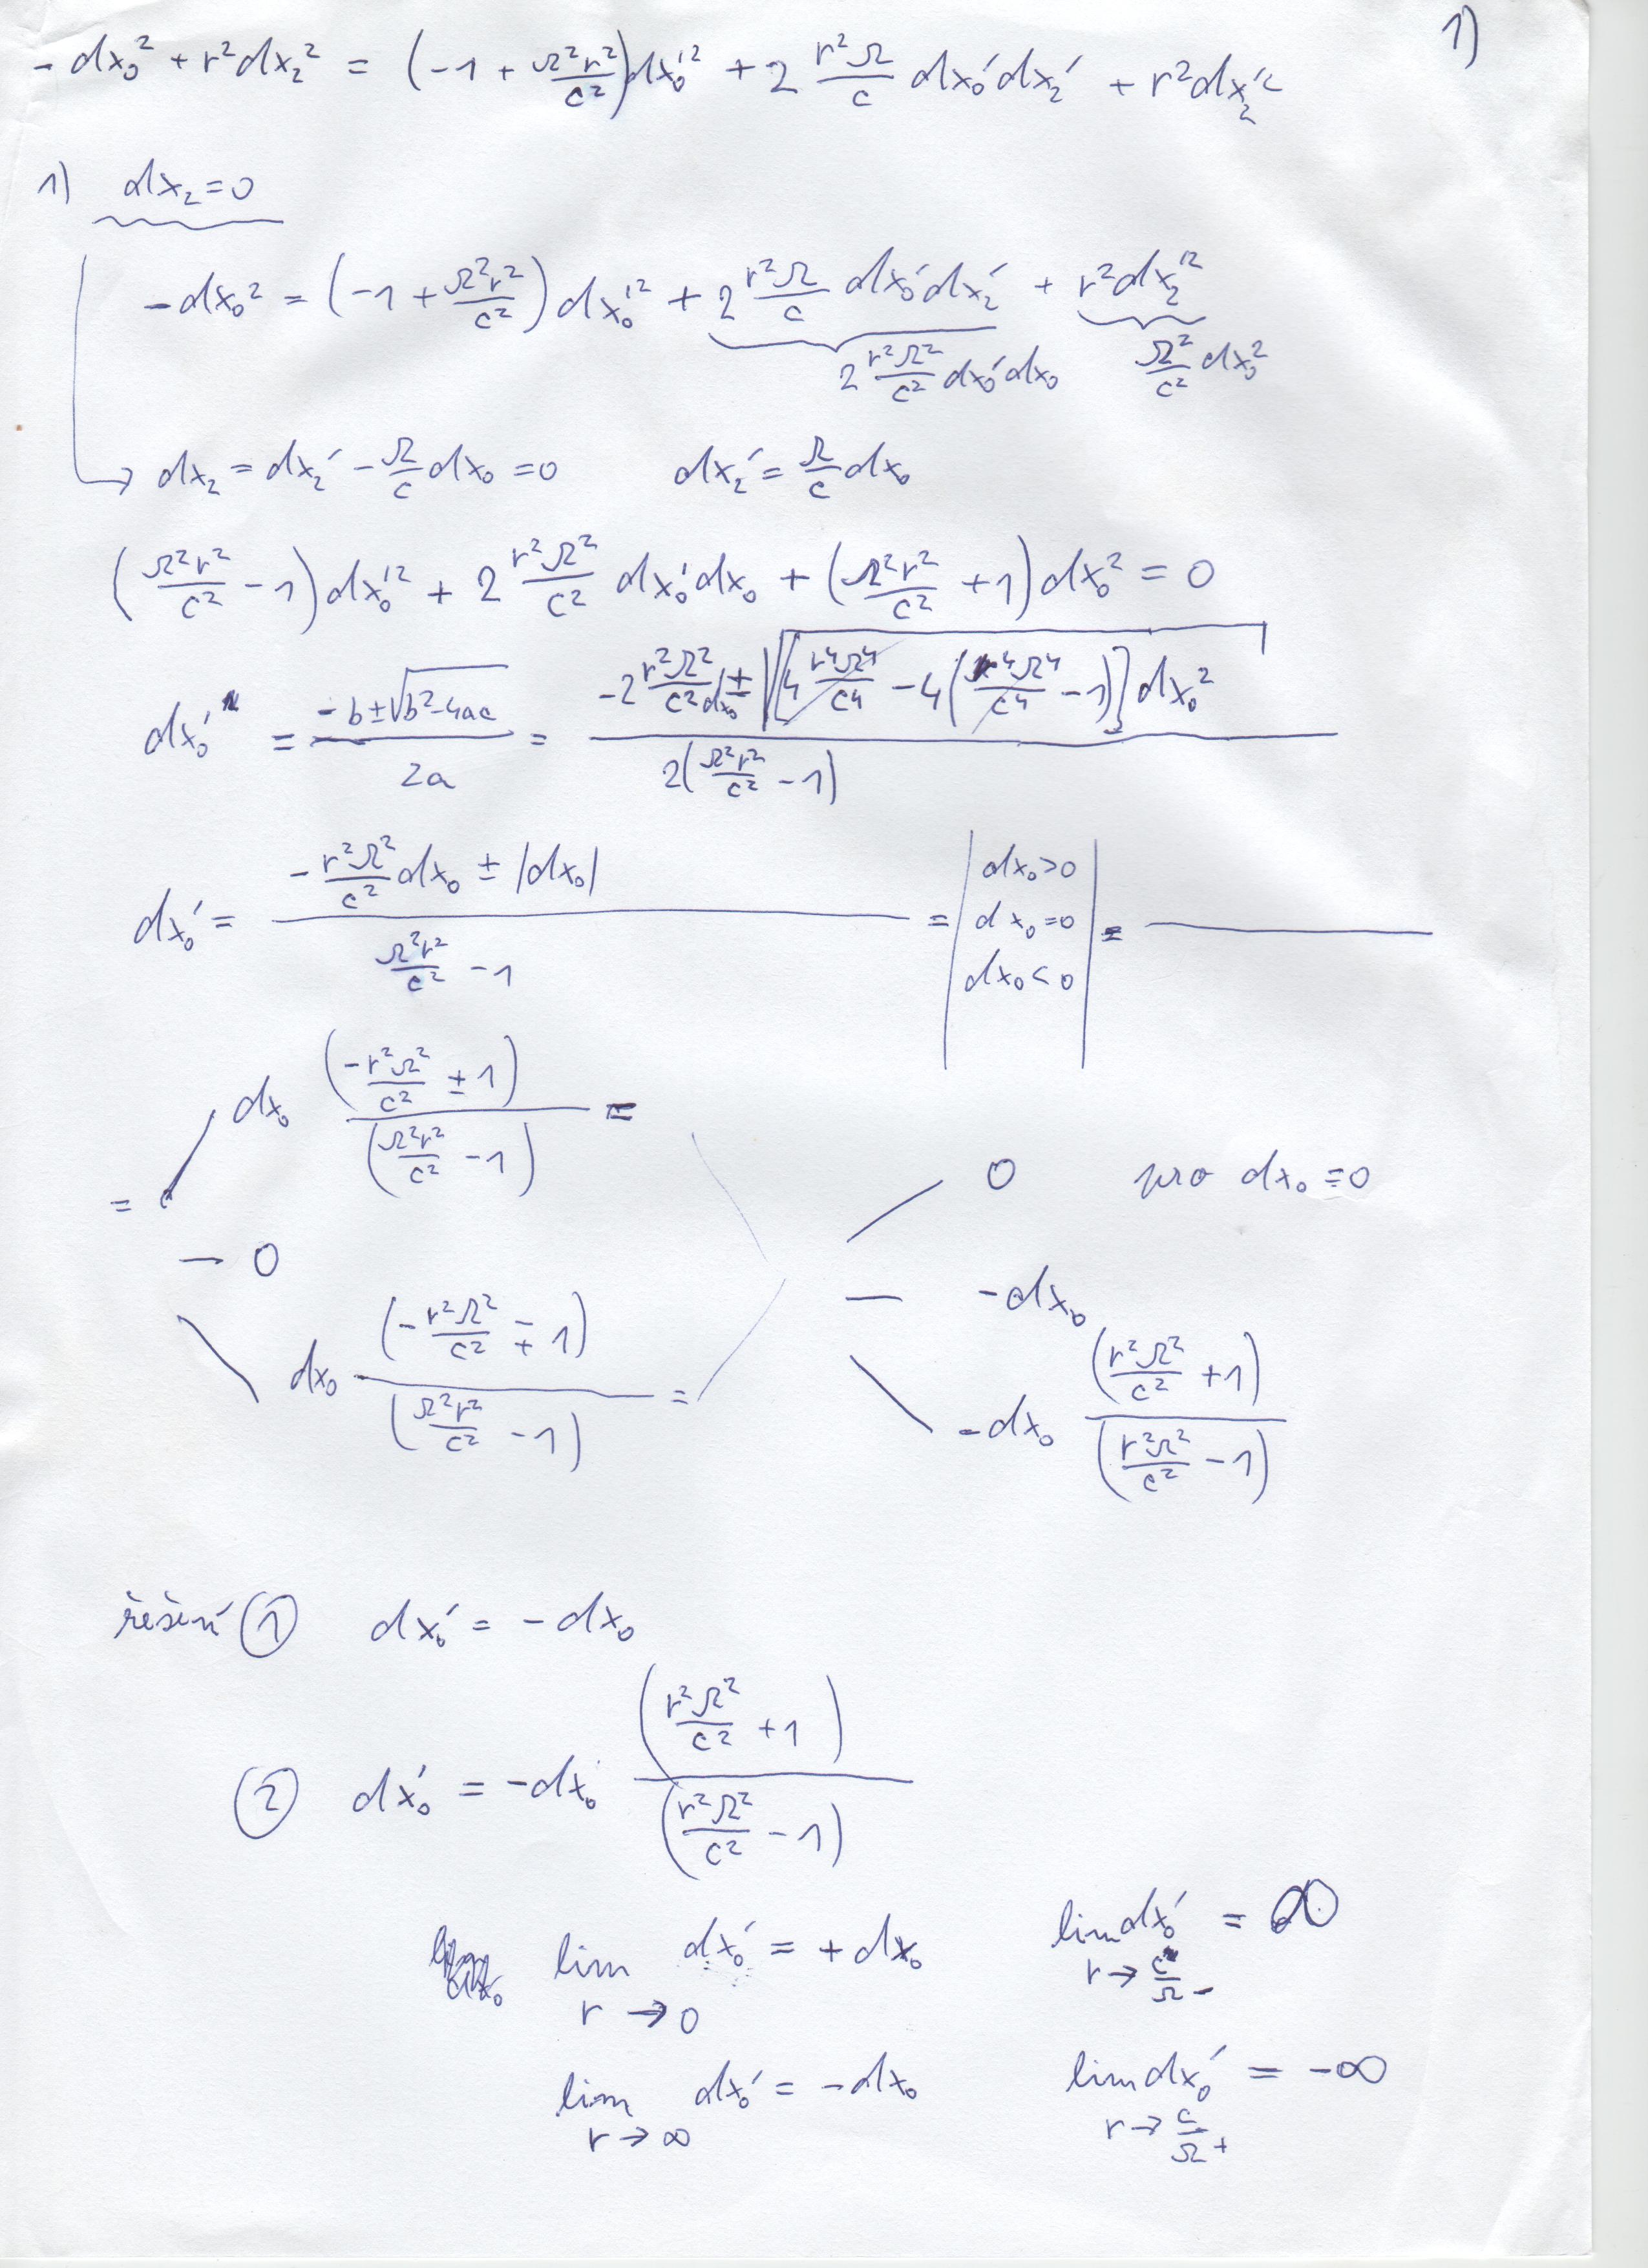 1)
- dx₀² + r²dx₂² = (-1 + Ω²r²/c²)dx₀'² + 2 r²Ω/c dx₀'dx₂' + r²dx₂'²
1) dx₂ = 0
-dx₀² = (-1 + Ω²r²/c²) dx₀'² + 2 r²Ω/c dx₀'dx₂' + r²dx₂'²
2 r²Ω²/c² dx₀'dx₀ Ω²/c² dx₀²
→ dx₂ = dx₂' - Ω/c dx₀ = 0 dx₂' = Ω/c dx₀
(Ω²r²/c² - 1) dx₀'² + 2 r²Ω²/c² dx₀'dx₀ + (Ω²r²/c² + 1) dx₀² = 0
dx₀' = (-b ± √(b²-4ac))/2a = (-2 r²Ω²/c² dx₀ ± √([4 r⁴Ω⁴/c⁴ - 4(r⁴Ω⁴/c⁴ - 1)] dx₀²))/(2(Ω²r²/c² - 1))
dx₀' = (- r²Ω²/c² dx₀ ± |dx₀|)/(Ω²r²/c² - 1) = | dx₀>0 dx₀=0 dx₀<0 | =
= dx₀ (-r²Ω²/c² ± 1)/(Ω²r²/c² - 1) =
0 pro dx₀ = 0
- 0
- dx₀
dx₀ (-r²Ω²/c² ∓ 1)/(Ω²r²/c² - 1) =
- dx₀ (r²Ω²/c² + 1)/(r²Ω²/c² - 1)
řešení ① dx₀' = - dx₀
② dx₀' = -dx₀ (r²Ω²/c² + 1)/(r²Ω²/c² - 1)
lim r→0 dx₀' = + dx₀ lim r→c/Ω- dx₀' = ∞
lim r→∞ dx₀' = - dx₀ lim r→c/Ω+ dx₀' = -∞